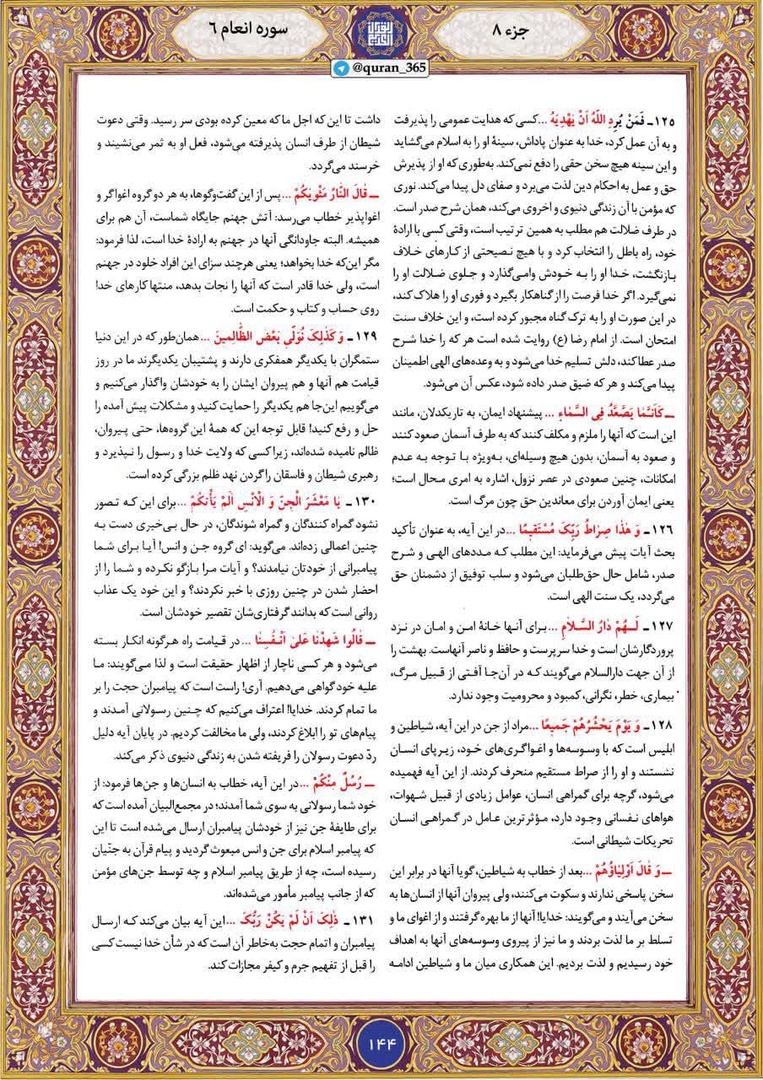 جزء ۸
سوره انعام ۶
@quran_365
۱۲۵ـ فَمَنْ يُرِدِ اللّهُ اَنْ يَهْدِيَهُ ...کسی که هدایت عمومی را پذیرفت
و به آن عمل کرد، خدا به عنوان پاداش، سینهٔ او را به اسلام می‌گشاید
و این سینه هیچ سخن حقی را دفع نمی‌کند. به‌طوری که او از پذیرش
حق و عمل به احکام دین لذت می‌برد و صفای دل پیدا می‌کند. نوری
که مؤمن با آن زندگی دنیوی و اخروی می‌کند، همان شرح صدر است.
در طرف ضلالت هم مطلب به همین ترتیب است، وقتی کسی با ارادهٔ
خود، راه باطل را انتخاب کرد و با هیچ نصیحتی از کارهای خلاف
بازنگشت، خدا او را به خودش وامی‌گذارد و جلوی ضلالت او را
نمی‌گیرد. اگر خدا فرصت را از گناهکار بگیرد و فوری او را هلاک کند،
در این صورت او را به ترک گناه مجبور کرده است، و این خلاف سنت
امتحان است. از امام رضا (ع) روایت شده است هر که را خدا شرح
صدر عطا کند، دلش تسلیم خدا می‌شود و به وعده‌های الهی اطمینان
پیدا می‌کند و هر که ضیق صدر داده شود، عکس آن می‌شود.
ــ كَاَنَّمَا يَصَّعَّدُ فِى السَّمَاءِ ... پیشنهاد ایمان، به تاریکدلان، مانند
این است که آنها را ملزم و مکلف کنند که به طرف آسمان صعود کنند
و صعود به آسمان، بدون هیچ وسیله‌ای، به‌ویژه با توجه به عدم
امکانات، چنین صعودی در عصر نزول، اشاره به امری محال است؛
یعنی ایمان آوردن برای معاندین حق چون مرگ است.
۱۲۶ـ وَ هٰذَا صِرَاطُ رَبِّكَ مُسْتَقِيمًا ...در این آیه، به عنوان تأکید
بحث آیات پیش می‌فرماید: این مطلب که مددهای الهی و شرح
صدر، شامل حال حق‌طلبان می‌شود و سلب توفیق از دشمنان حق
می‌گردد، یک سنت الهی است.
۱۲۷ـ لَهُمْ دَارُ السَّلاَمِ ...برای آنها خانهٔ امن و امان در نزد
پروردگارشان است و خدا سرپرست و حافظ و ناصر آنهاست. بهشت را
از آن جهت دارالسلام می‌گویند که در آن‌جا آفتی از قبیل مرگ،
بیماری، خطر، نگرانی، کمبود و محرومیت وجود ندارد.
۱۲۸ـ وَ يَوْمَ يَحْشُرُهُمْ جَمِيعًا ...مراد از جن در این آیه، شیاطین و
ابلیس است که با وسوسه‌ها و اغواگری‌های خود، زیرپای انسان
نشستند و او را از صراط مستقیم منحرف کردند. از این آیه فهمیده
می‌شود، گرچه برای گمراهی انسان، عوامل زیادی از قبیل شهوات،
هواهای نفسانی وجود دارد، مؤثرترین عامل در گمراهی انسان
تحریکات شیطانی است.
ــ وَ قَالَ اَوْلِيَاؤُهُمْ ...بعد از خطاب به شیاطین، گویا آنها در برابر این
سخن پاسخی ندارند و سکوت می‌کنند، ولی پیروان آنها از انسان‌ها به
سخن می‌آیند و می‌گویند: خدایا! آنها از ما بهره گرفتند و از اغوای ما و
تسلط بر ما لذت بردند و ما نیز از پیروی وسوسه‌های آنها به اهداف
خود رسیدیم و لذت بردیم. این همکاری میان ما و شیاطین ادامه
داشت تا این که اجل ما که معین کرده بودی سر رسید. وقتی دعوت
شیطان از طرف انسان پذیرفته می‌شود، فعل او به ثمر می‌نشیند و
خرسند می‌گردد.
ــ قَالَ النَّارُ مَثْوٰيكُمْ ...پس از این گفت‌وگوها، به هر دو گروه اغواگر و
اغواپذیر خطاب می‌رسد: آتش جهنم جایگاه شماست، آن هم برای
همیشه. البته جاودانگی آنها در جهنم به ارادهٔ خدا است، لذا فرمود:
مگر این‌که خدا بخواهد؛ یعنی هرچند سزای این افراد خلود در جهنم
است، ولی خدا قادر است که آنها را نجات بدهد، منتها کارهای خدا
روی حساب و کتاب و حکمت است.
۱۲۹ـ وَ كَذٰلِكَ نُوَلِّى بَعْضَ الظَّالِمِينَ ...همان‌طور که در این دنیا
ستمگران با یکدیگر همفکری دارند و پشتیبان یکدیگرند ما در روز
قیامت هم آنها و هم پیروان ایشان را به خودشان واگذار می‌کنیم و
می‌گوییم این‌جا هم یکدیگر را حمایت کنید و مشکلات پیش آمده را
حل و رفع کنید! قابل توجه این که همهٔ این گروه‌ها، حتی پیروان،
ظالم نامیده شده‌اند، زیرا کسی که ولایت خدا و رسول را نپذیرد و
رهبری شیطان و فاسقان را گردن نهد ظلم بزرگی کرده است.
۱۳۰ـ يَا مَعْشَرَ الْجِنِّ وَ الْاِنْسِ اَلَمْ يَأْتِكُمْ ...برای این که تصور
نشود گمراه کنندگان و گمراه شوندگان، در حال بی‌خبری دست به
چنین اعمالی زده‌اند. می‌گوید: ای گروه جن و انس! آیا برای شما
پیامبرانی از خودتان نیامدند؟ و آیات مرا بازگو نکرده و شما را از
احضار شدن در چنین روزی با خبر نکردند؟ و این خود یک عذاب
روانی است که بدانند گرفتاری‌شان تقصیر خودشان است.
ــ قَالُوا شَهِدْنَا عَلىٰ اَنْفُسِنَا ...در قیامت راه هرگونه انکار بسته
می‌شود و هر کسی ناچار از اظهار حقیقت است و لذا می‌گویند: ما
علیه خود گواهی می‌دهیم. آری! راست است که پیامبران حجت را بر
ما تمام کردند. خدایا! اعتراف می‌کنیم که چنین رسولانی آمدند و
پیام‌های تو را ابلاغ کردند، ولی ما مخالفت کردیم. در پایان آیه دلیل
ردّ دعوت رسولان را فریفته شدن به زندگی دنیوی ذکر می‌کند.
ــ رُسُلٌ مِنْكُمْ ...در این آیه، خطاب به انسان‌ها و جن‌ها فرمود: از
خود شما رسولانی به سوی شما آمدند؛ در مجمع‌البیان آمده است که
برای طایفهٔ جن نیز از خودشان پیامبران ارسال می‌شده است تا این
که پیامبر اسلام برای جن و انس مبعوث گردید و پیام قرآن به جنّیان
رسیده است، چه از طریق پیامبر اسلام و چه توسط جن‌های مؤمن
که از جانب پیامبر مأمور می‌شده‌اند.
۱۳۱ـ ذٰلِكَ اَنْ لَمْ يَكُنْ رَبُّكَ ...این آیه بیان می‌کند که ارسال
پیامبران و اتمام حجت به‌خاطر آن است که در شأن خدا نیست کسی
را قبل از تفهیم جرم و کیفر مجازات کند.
۱۴۴